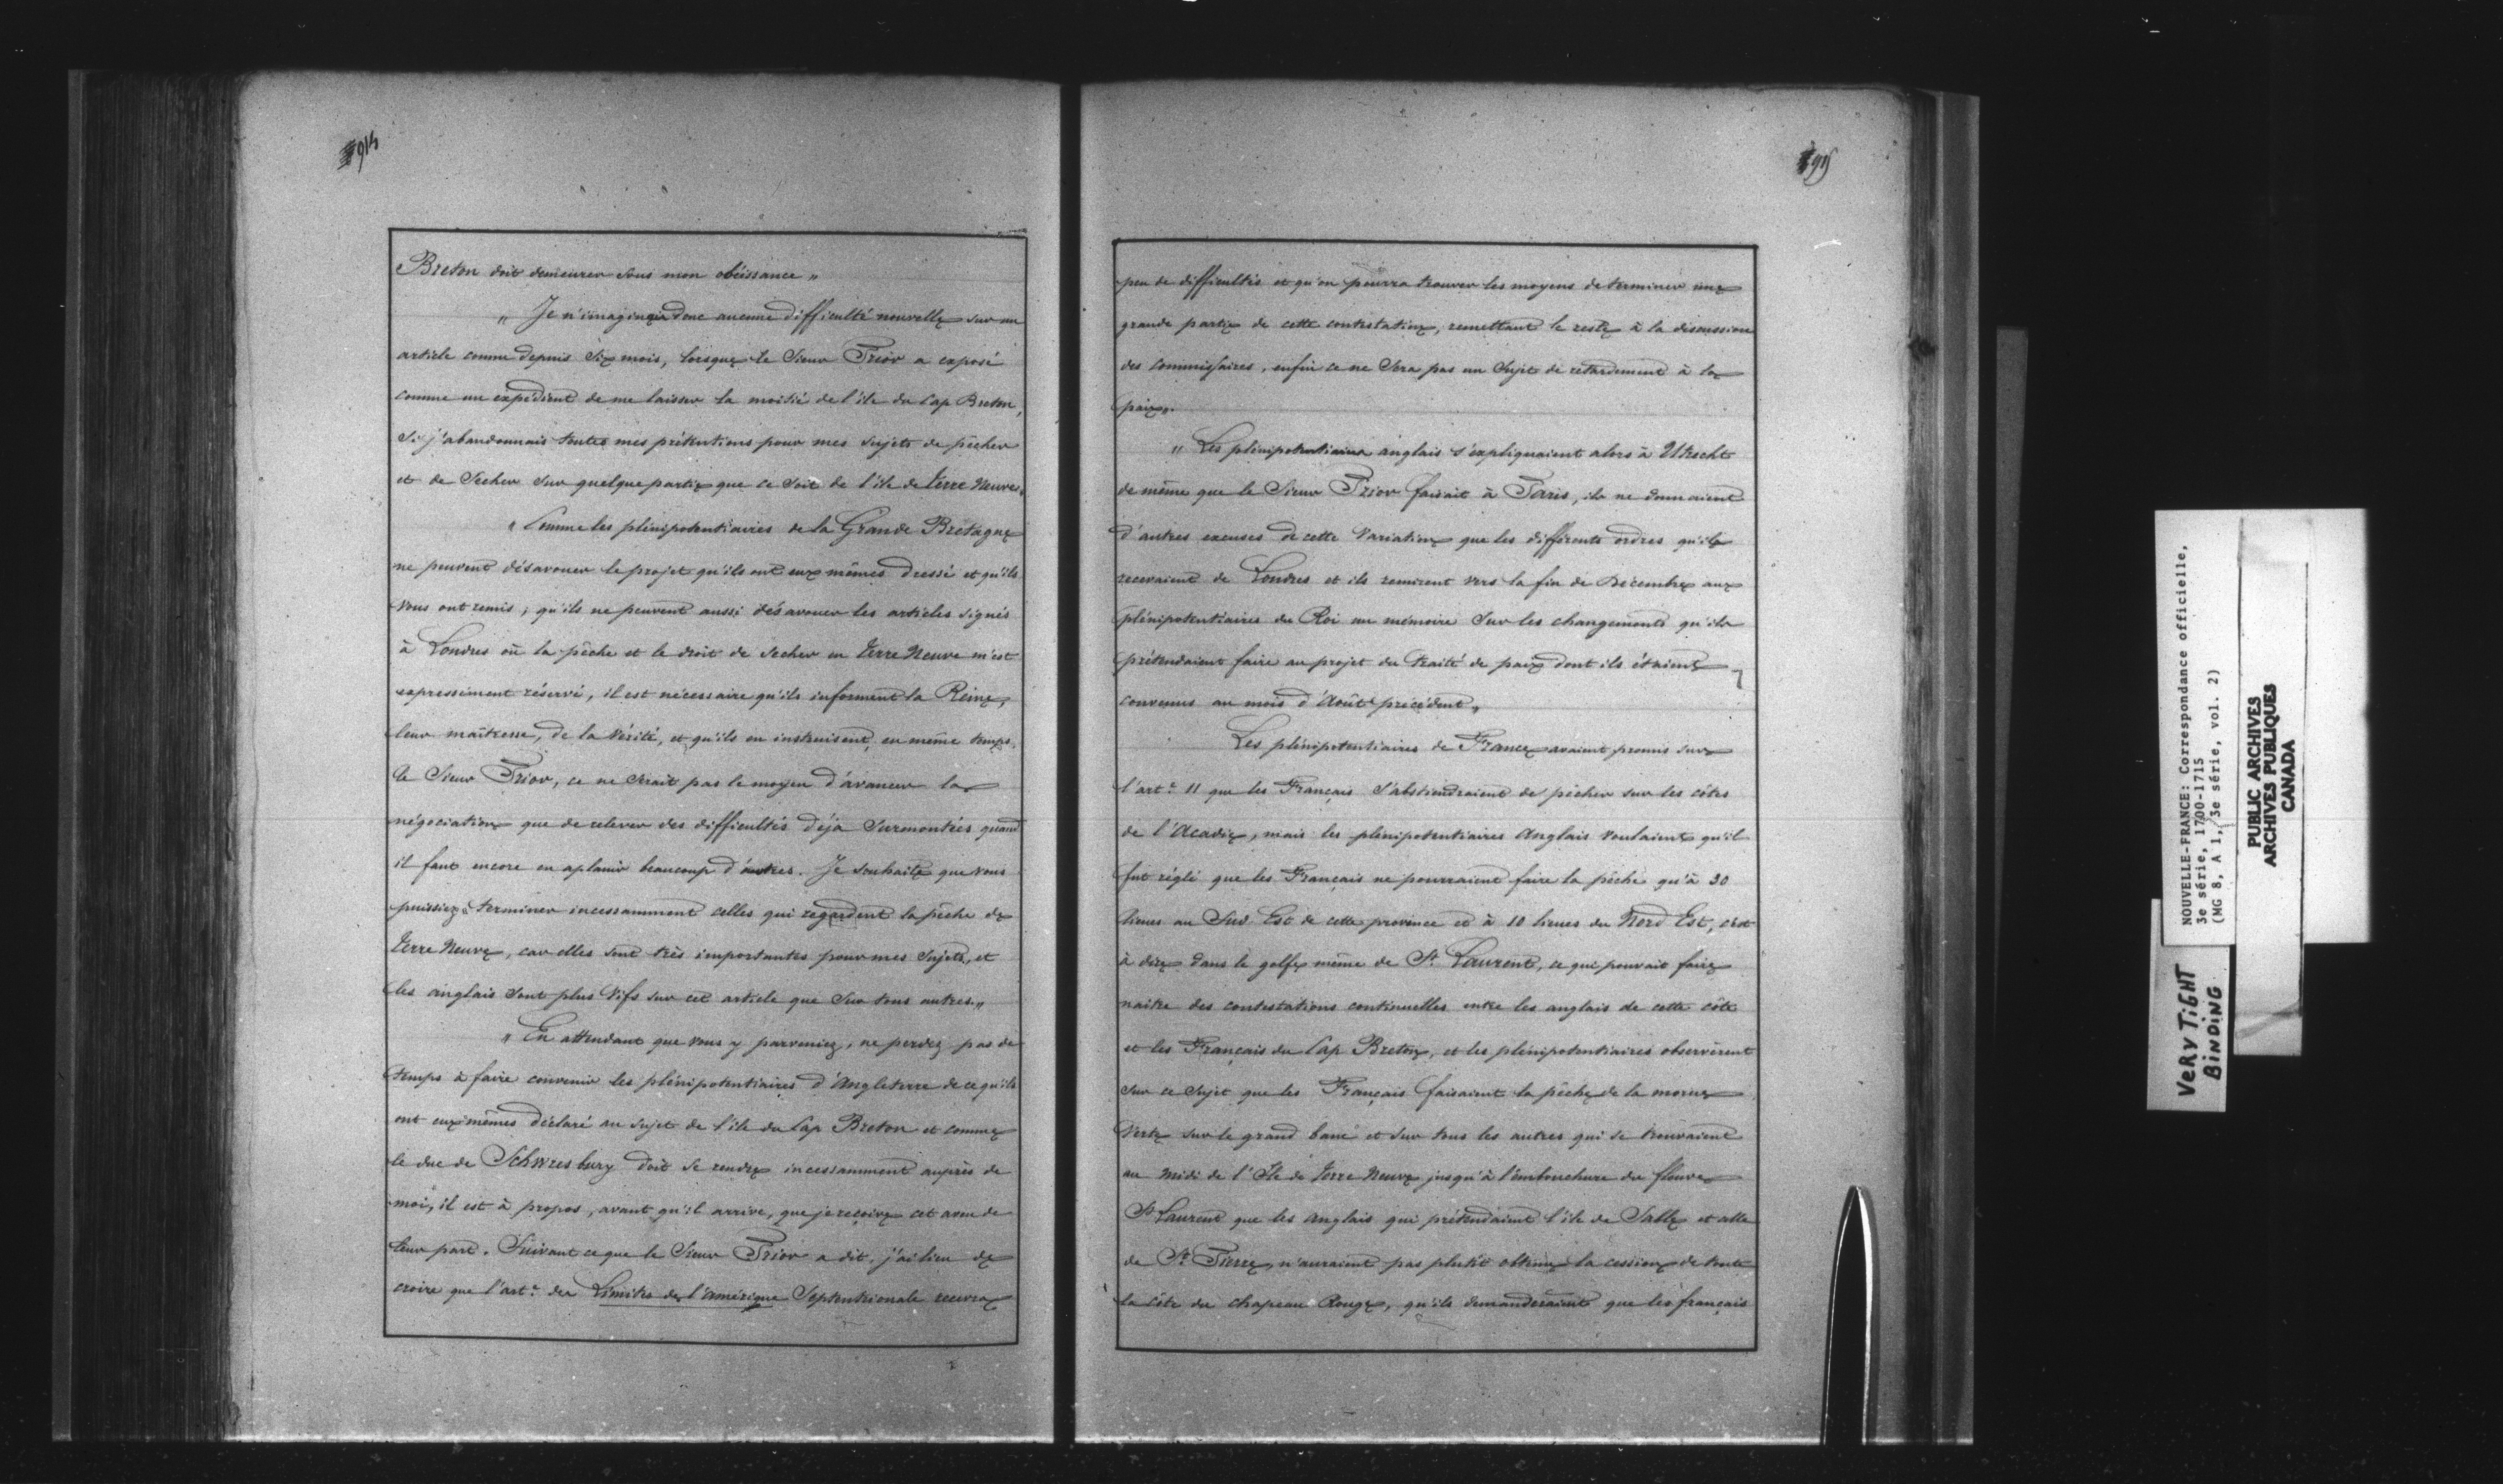 914
Breton doit demeurer sous mon obéissance „
„ Je n'imaginais donc aucune difficulté nouvelle sur un
article connu depuis six mois, lorsque le Sieur Prior a exposé
comme un expédient de me laisser la moitié de l'ile du Cap Breton,
si j'abandonnais toutes mes prétentions pour mes sujets de pêcher
et de Secher sur quelque partie que ce soit de l'ile de terre Neuve„
„ Comme les plénipotentiaires de la Grande Bretagne
ne peuvent désavouer le projet qu'ils ont eux mêmes dressé et qu'ils
vous ont remis ; qu'ils ne peuvent aussi désavouer les articles signés
à Londres où la pêche et le droit de secher en terre Neuve m'est
expressément réservé, il est nécessaire qu'ils informent la Reine,
leur maîtresse, de la vérité, et qu'ils en instruisent, en même temps,
le Sieur Prior, ce ne serait pas le moyen d'avancer la
négociation que de relever des difficultés déja surmontées quand
il faut encore en aplanir beaucoup d'autres. Je souhaite que vous
puissiez „ terminer incessamment celles qui regardent la pêche de
terre Neuve, car elles sont très importantes pour mes sujets, et
les anglais sont plus vifs sur cet article que sur tous autres „
„ En attendant que vous y parveniez, ne perdez pas de
temps à faire convenir les plénipotentiaires d'Angleterre de ce qu'ils
ont eux mêmes déclaré au sujet de l'ile du Cap Breton et comme
le duc de Schwresbury doit se rendre incessamment auprès de
moi, il est à propos, avant qu'il arrive, que je reçoive cet aveu de
leur part. Suivant ce que le Sieur Prior a dit, j'ai lieu de
croire que l'art.e des Limites de l'amérique Septentrionale recevra
915
peu de difficultés et qu'on pourra trouver les moyens de terminer une
grande partie de cette contestation, remettant le reste à la discussion
des commissaires, enfin ce ne sera pas un sujet de retardement à la
paix„
„ Les plénipotentiaires anglais s'expliquaient alors à Utrecht
de même que le Sieur Prior faisait à Paris, ils ne donnaient
d'autres excuses de cette variation que les différents ordres qu'ils
recevaient de Londres et ils remirent vers la fin de Décembre aux
plénipotentiaires du Roi un mémoire sur les changements qu'ils
prétendaient faire au projet du traité de paix dont ils étaient
convenus au mois d'Août précédent „
Les plénipotentiaires de France avaient promis sur
l'art.e 11 que les Français s'abstiendraient de pêcher sur les côtes
de l'Acadie, mais les plénipotentiaires Anglais voulaient qu'il
fut réglé que les Français ne pourraient faire la pêche qu'à 30
lieues au Sud Est de cette province et à 10 lieues du Nord Est, c'est
à dire dans le golfe même de St. Laurent, ce qui pouvait faire
naitre des contestations continuelles entre les anglais de cette côte
et les Français du Cap Breton, et les plénipotentiaires observèrent
sur ce sujet que les Français faisaient la pêche de la morue
verte sur le grand banc et sur tous les autres qui se trouvaient
au midi de l'Ile de terre Neuve jusqu'à l'embouchure du fleuve
St Laurent que les Anglais qui prétendaient l'ile de Sable et celle
de St. Pierre, n'auraient pas plutôt obtenu la cession de toute
la côte du chapeau Rouge, qu'ils demanderaient que les français
NOUVELLE-FRANCE: Correspondance officielle,
3e série, 1700-1715
(MG 8, A 1, 3e série, vol. 2)
PUBLIC ARCHIVES
ARCHIVES PUBLIQUES
CANADA
VERY TIGHT
BINDING